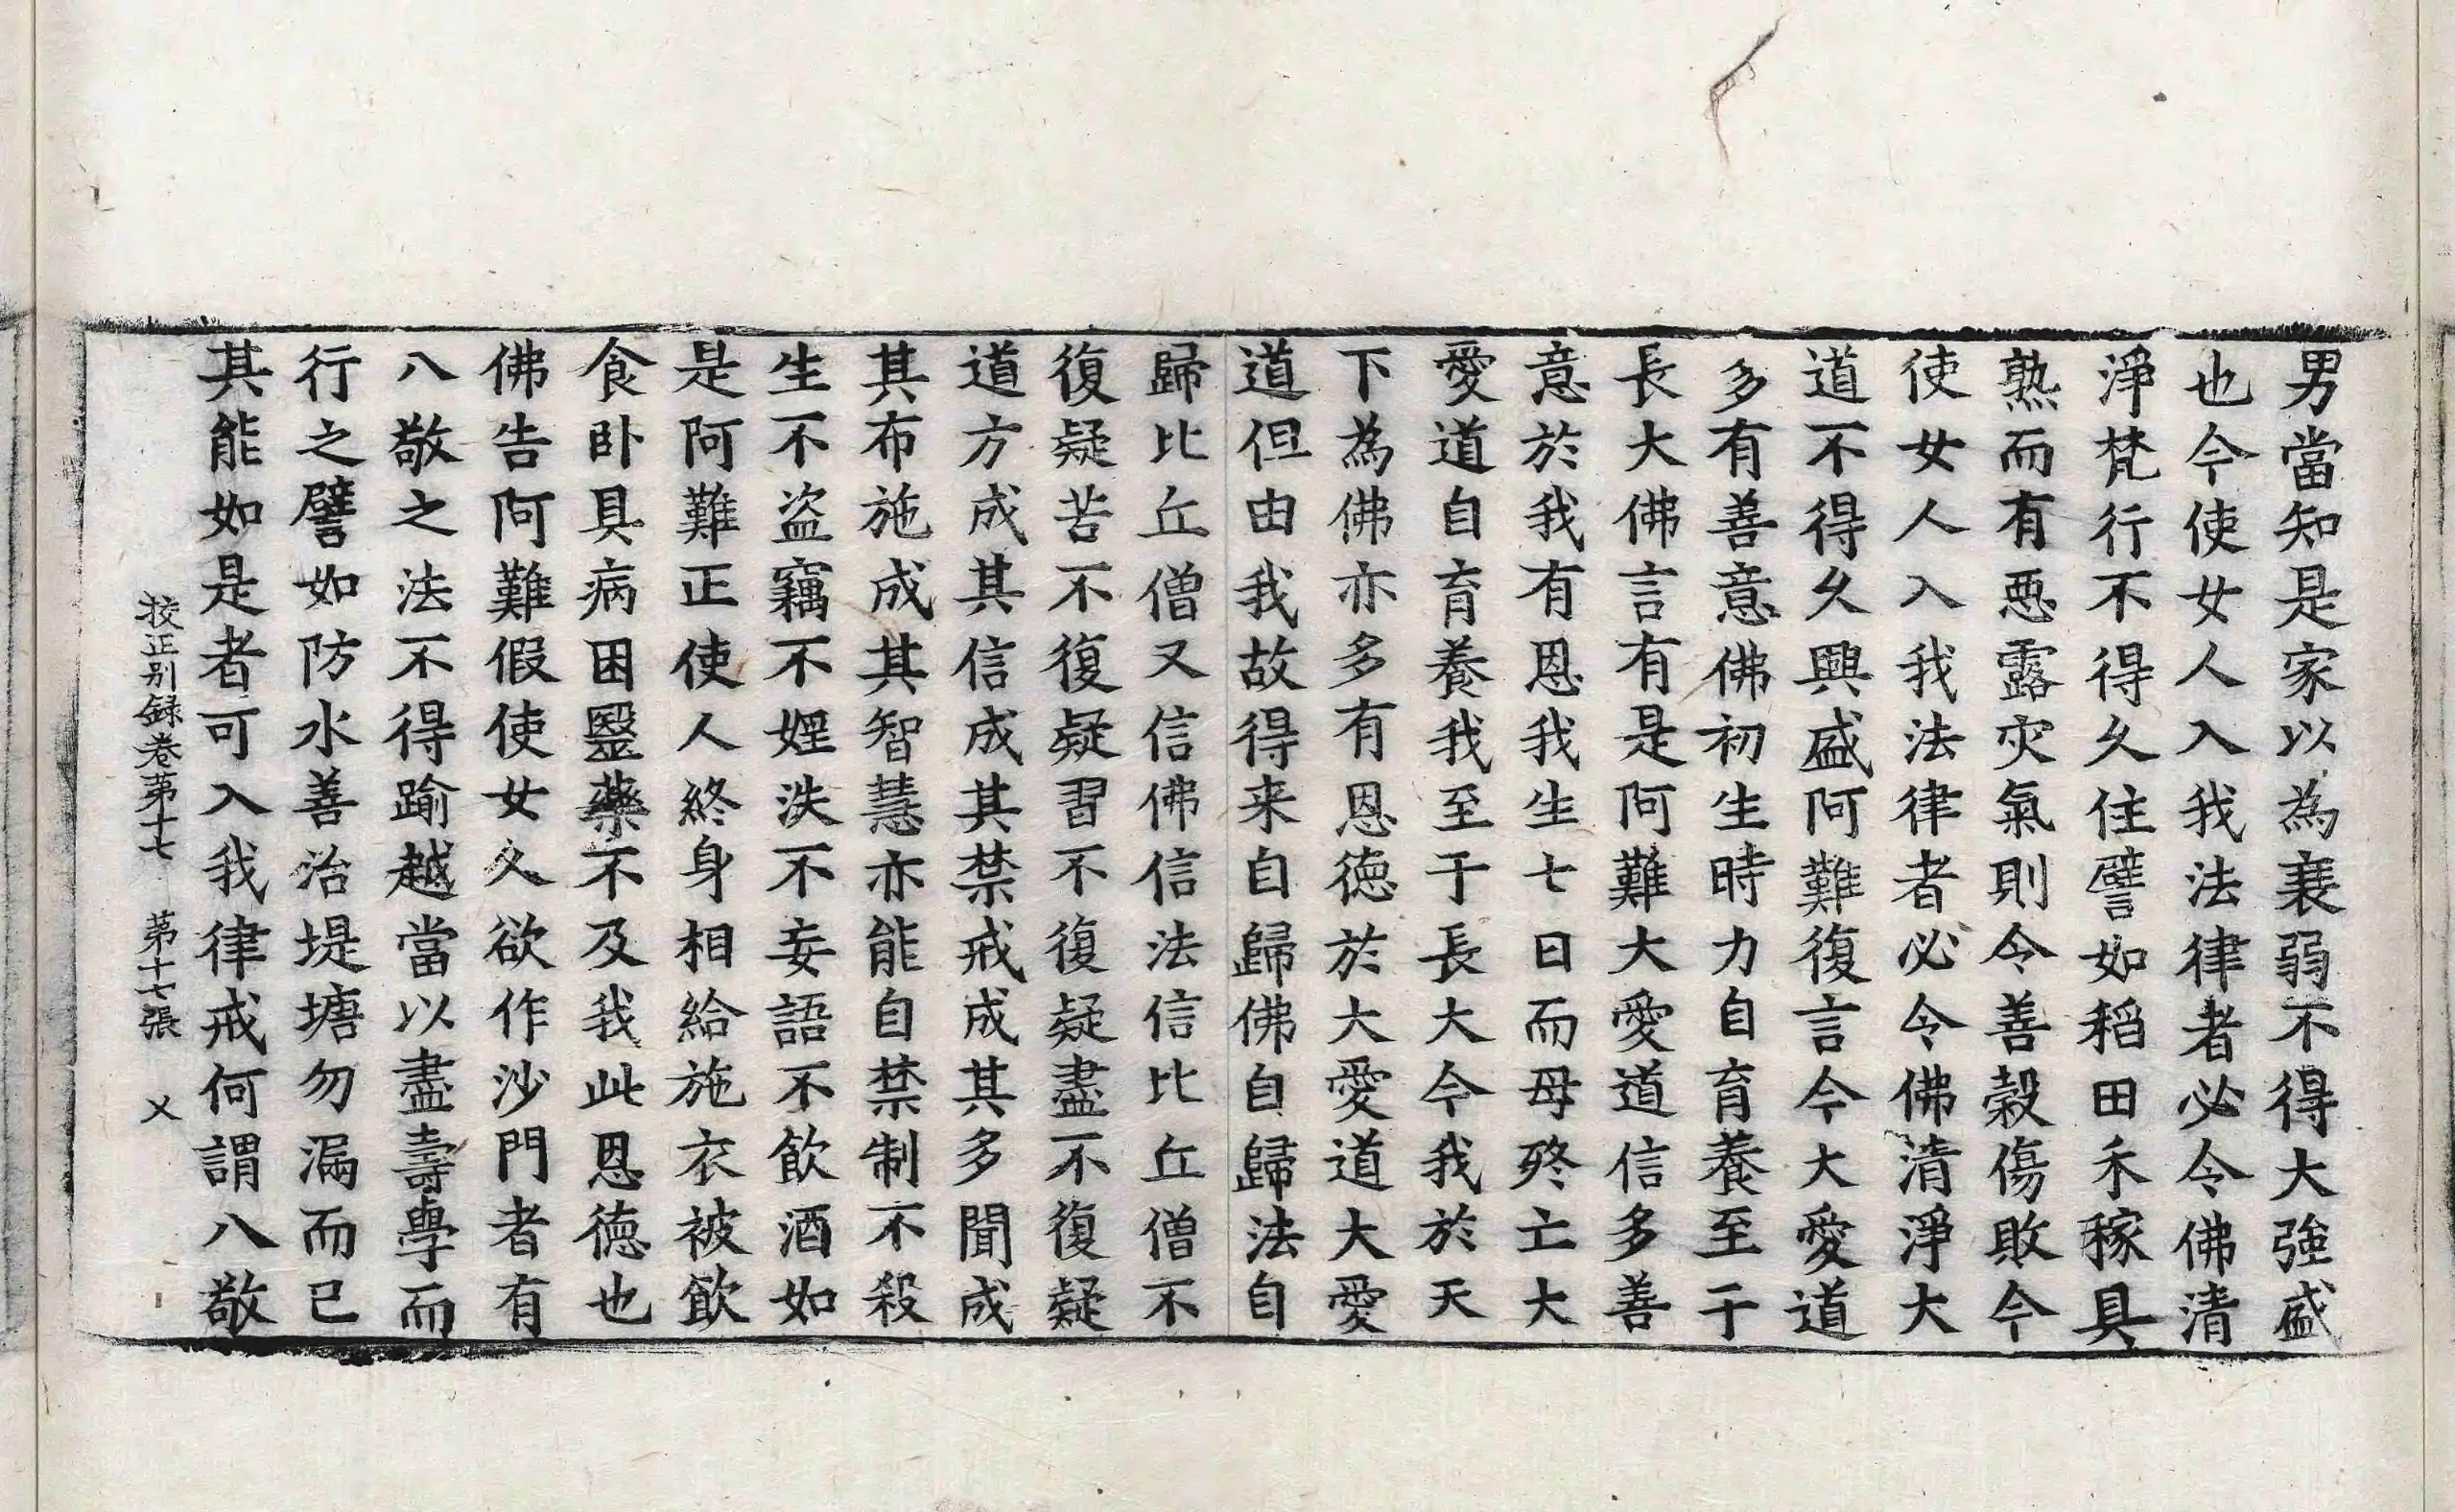 男當知是家以為衰弱不得大強盛
也今使女人入我法律者必令佛清
淨梵行不得久住譬如稻田禾稼具
熟而有惡露灾氣則令善穀傷敗今
使女人入我法律者必令佛清淨大
道不得久興盛阿難復言今大愛道
多有善意佛初生時力自育養至于
長大佛言有是阿難大愛道信多善
意於我有恩我生七日而母終亡大
愛道自育養我至于長大今我於天
下為佛亦多有恩德於大愛道大愛
道但由我故得来自歸佛自歸法自
歸比丘僧又信佛信法信比丘僧不
復疑苦不復疑習不復疑盡不復疑
道方成其信成其禁戒成其多聞成
其布施成其智慧亦能自禁制不殺
生不盜竊不婬泆不妄語不飲酒如
是阿難正使人終身相給施衣被飲
食卧具病困醫藥不及我此恩德也
佛告阿難假使女人欲作沙門者有
八敬之法不得踰越當以盡壽學而
行之譬如防水善治堤塘勿漏而已
其能如是者可入我律戒何謂八敬
挍正别録卷第十七 第十七張 㐅